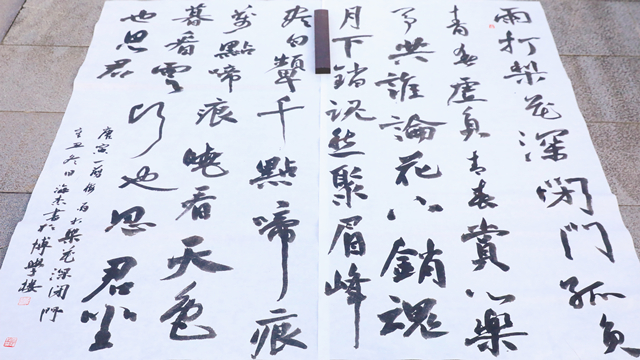 雨打梨花深閉門孤負
青春虛負青春賞心樂
事共誰論花下銷魂
月下銷魂愁聚眉峰
尽日顰千點啼痕
萬點啼痕曉看天色
暮看雲行也思君坐
也思君
唐寅一剪梅雨打梨花深閉門
辛丑冬日海杰書於博學樓